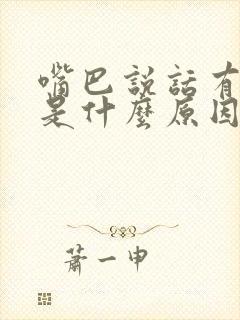 嘴巴說話有
是什麼原因
蕭一申